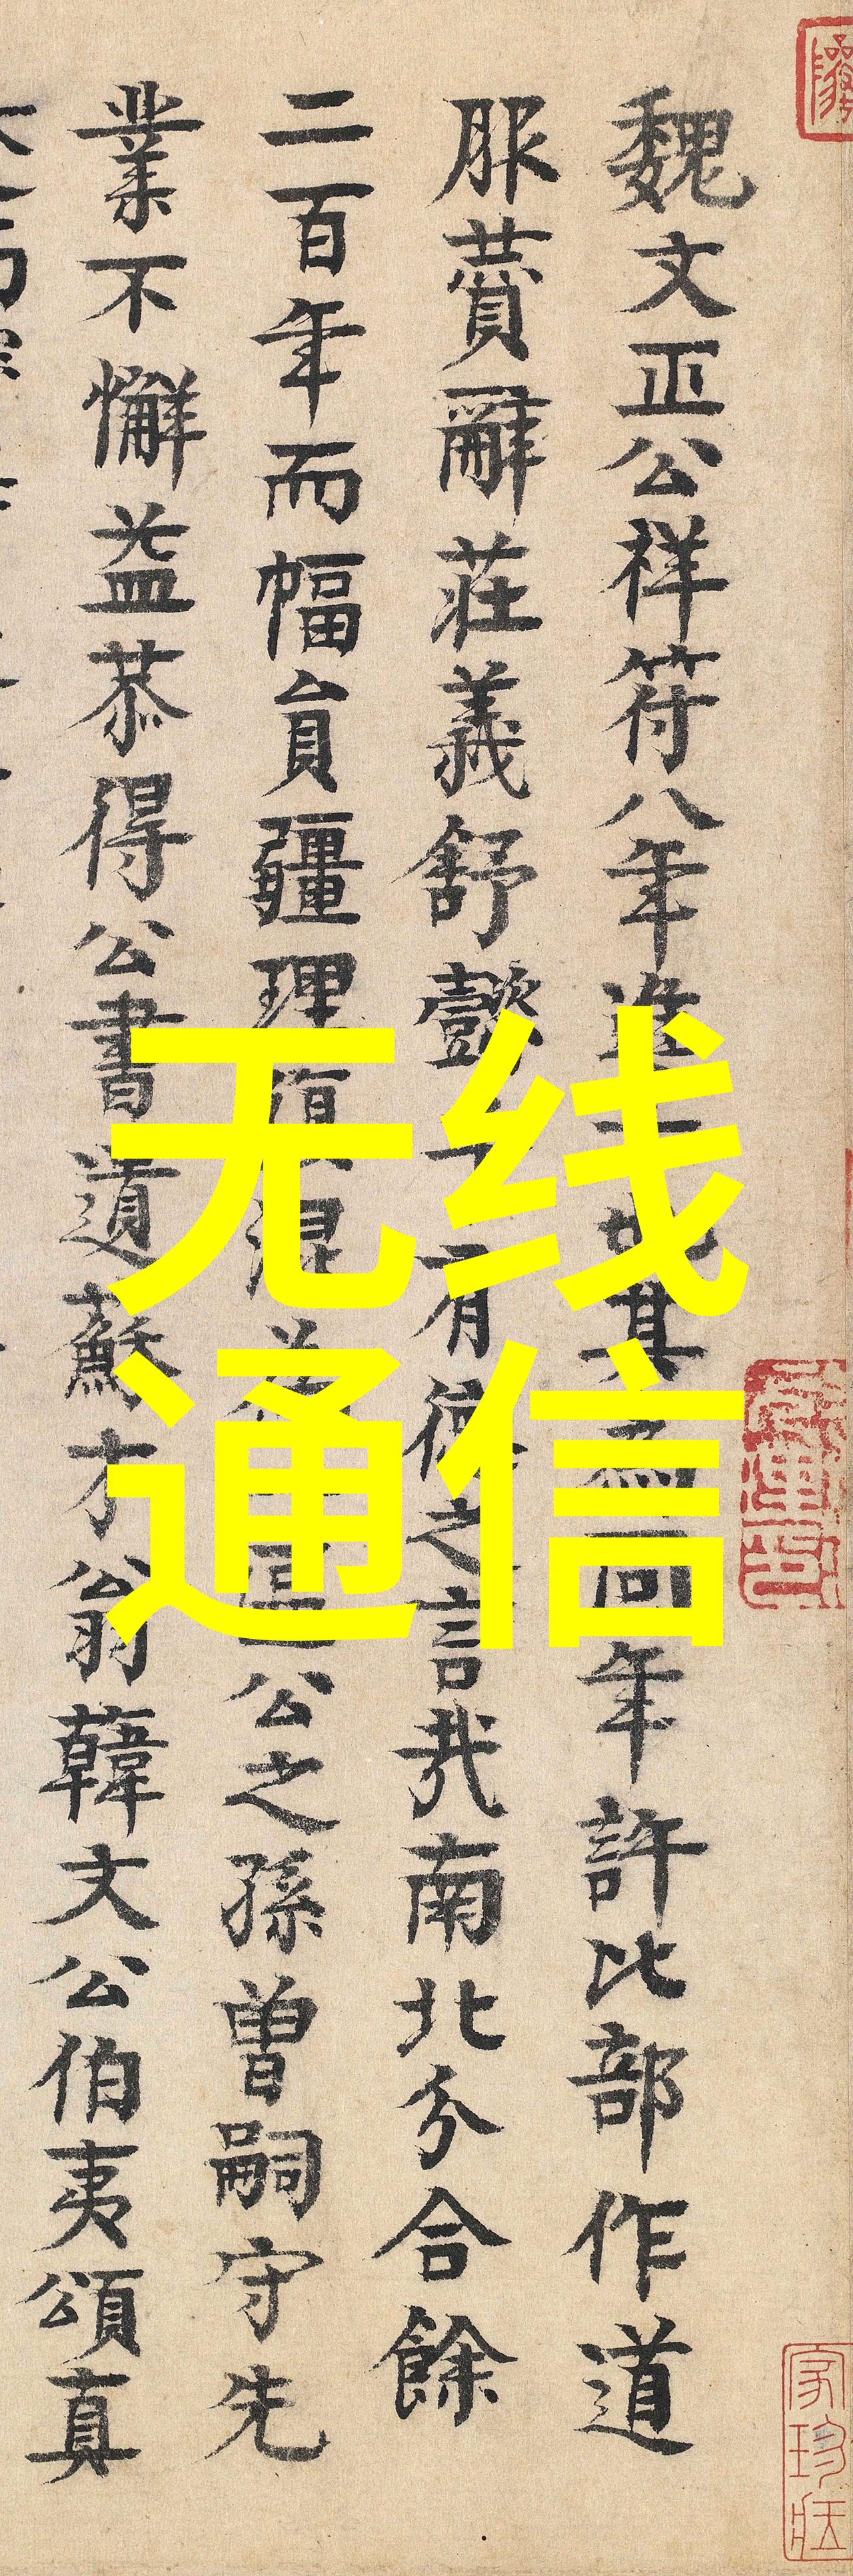 魏文正公祥符八年進其為同年許比部作道
服贊辭莊義舒懿有德之言哉南北分合餘
二百年而幅員疆理復混為正公之孫曾嗣守先
業不懈益恭得公書遺蘇才翁韓文公伯夷頌真
无线
通信